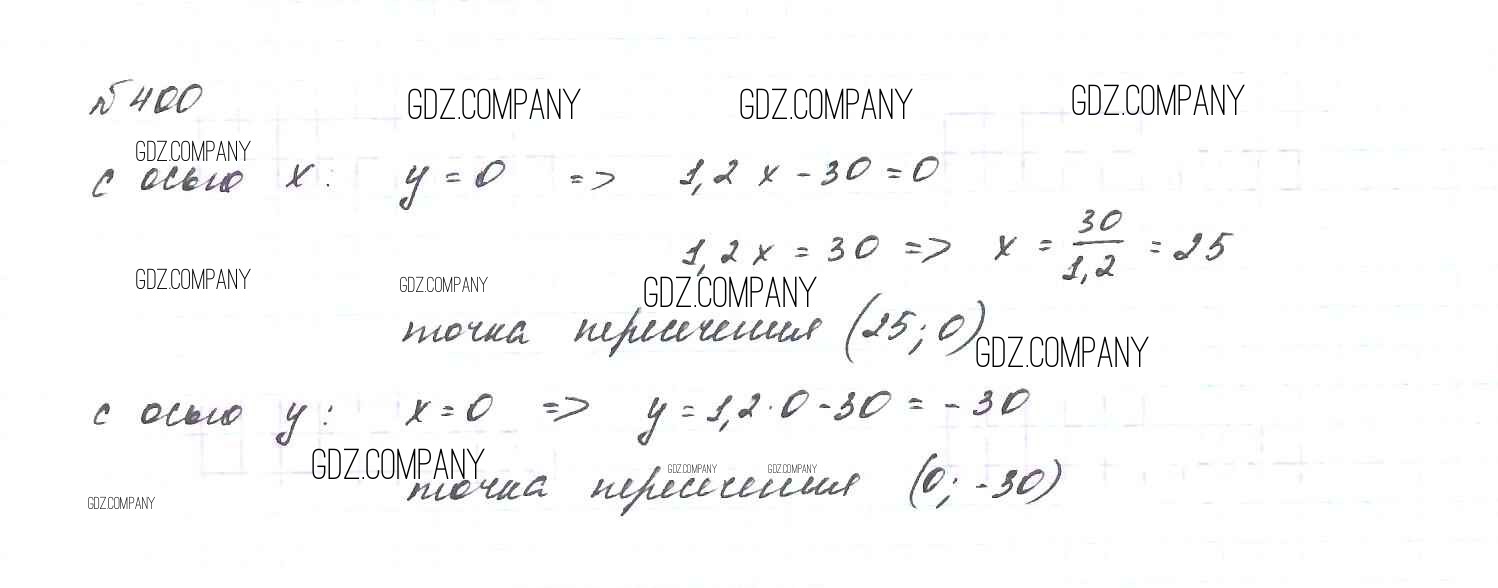 № 400
GDZ.COMPANY GDZ.COMPANY GDZ.COMPANY
GDZ.COMPANY
с осью x: y = 0 => 1,2 x - 30 = 0
1,2 x = 30 => x = 30/1,2 = 25
GDZ.COMPANY GDZ.COMPANY GDZ.COMPANY
точка пересечения (25; 0)
GDZ.COMPANY
с осью y: x = 0 => y = 1,2 · 0 - 30 = - 30
GDZ.COMPANY GDZ.COMPANY GDZ.COMPANY
точка пересечения (0; -30)
GDZ.COMPANY